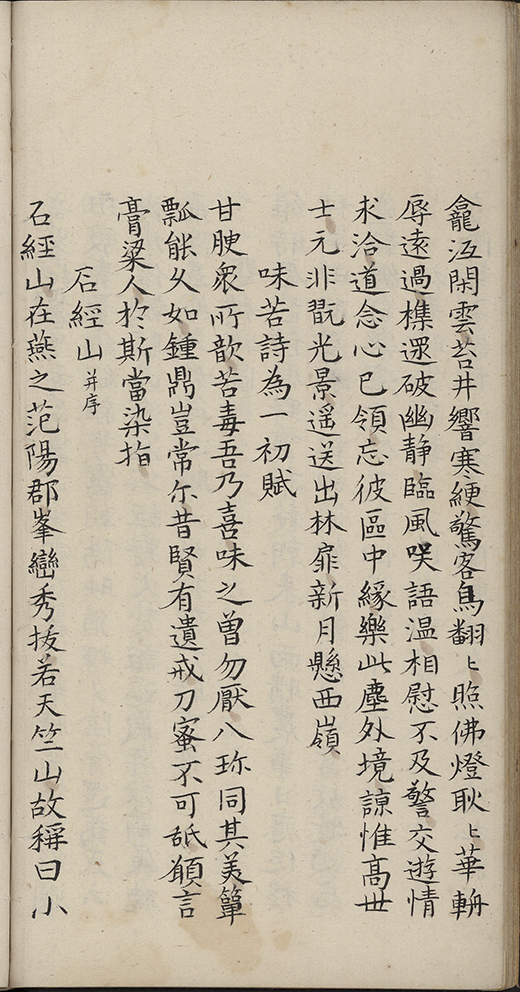 龕沍閑雲苔井響寒綆驚客鳥翻〻照佛燈耿〻華輧
辱遠過樵還破幽静臨風咲語温相慰不及警交遊情
求洽道念心已領忘彼區中緣樂此塵外境諒惟髙世
士元非翫光景遥送出林扉新月懸西嶺
味苦詩為一初賦
甘腴衆所歆苦毒吾乃喜味之曽勿厭八珎同其美簞
瓢能乆如鍾鼎豈常尓昔賢有遺戒刀蜜不可舐願言
膏粱人扵斯當染指
石經山并序
石經山在燕之范陽郡峯巒秀拔若天竺山故稱曰小